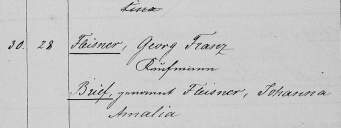 Lina
30. 28 Fleisner, Georg Franz
Kaufmann
Brief, genannt Fleisner, Johanna
Amalia